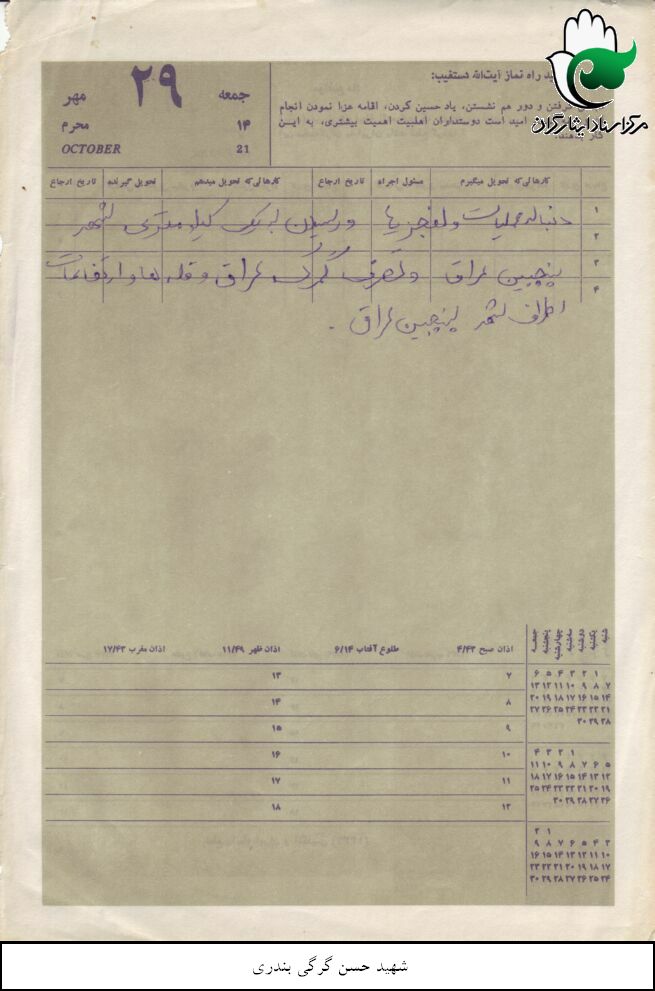 مرکز اسناد ایثارگران
جمعه
۲۹
مهر
۱۴
محرم
21
OCTOBER
ید راه نماز آیت‌الله دستغیب:
گرفتن و دور هم نشستن، یاد حسین کردن، اقامه عزا نمودن انجام
امید است دوستداران اهلبیت اهمیت بیشتری، به این
کار بدهند.
کارهائی‌که تحویل میگیرم
مسئول اجراء
تاریخ ارجاع
کارهائی‌که تحویل میدهم
تحویل گیرنده
تاریخ ارجاع
۱
۲
۳
۴
دنباله عملیات والفجر و رسیدن به یک کیلومتری شهر
پنجوین عراق و تصرف گمرک عراق و قله‌ها و ارتفاعات
اطراف شهر پنجوین عراق.
اذان صبح ۴/۴۳
طلوع آفتاب ۶/۱۴
اذان ظهر ۱۱/۴۹
اذان مغرب ۱۷/۴۳
۷
۱۳
۸
۱۴
۹
۱۵
۱۰
۱۶
۱۱
۱۷
۱۲
۱۸
شنبه
یکشنبه
دوشنبه
سه‌شنبه
چهارشنبه
پنجشنبه
جمعه
۱ ۲ ۳ ۴ ۵ ۶
۷ ۸ ۹ ۱۰ ۱۱ ۱۲ ۱۳
۱۴ ۱۵ ۱۶ ۱۷ ۱۸ ۱۹ ۲۰
۲۱ ۲۲ ۲۳ ۲۴ ۲۵ ۲۶ ۲۷
۲۸ ۲۹ ۳۰
۱ ۲ ۳ ۴
۵ ۶ ۷ ۸ ۹ ۱۰ ۱۱
۱۲ ۱۳ ۱۴ ۱۵ ۱۶ ۱۷ ۱۸
۱۹ ۲۰ ۲۱ ۲۲ ۲۳ ۲۴ ۲۵
۲۶ ۲۷ ۲۸ ۲۹ ۳۰
۱ ۲
۳ ۴ ۵ ۶ ۷ ۸ ۹
۱۰ ۱۱ ۱۲ ۱۳ ۱۴ ۱۵ ۱۶
۱۷ ۱۸ ۱۹ ۲۰ ۲۱ ۲۲ ۲۳
۲۴ ۲۵ ۲۶ ۲۷ ۲۸ ۲۹ ۳۰
شهید حسن گرگی بندری